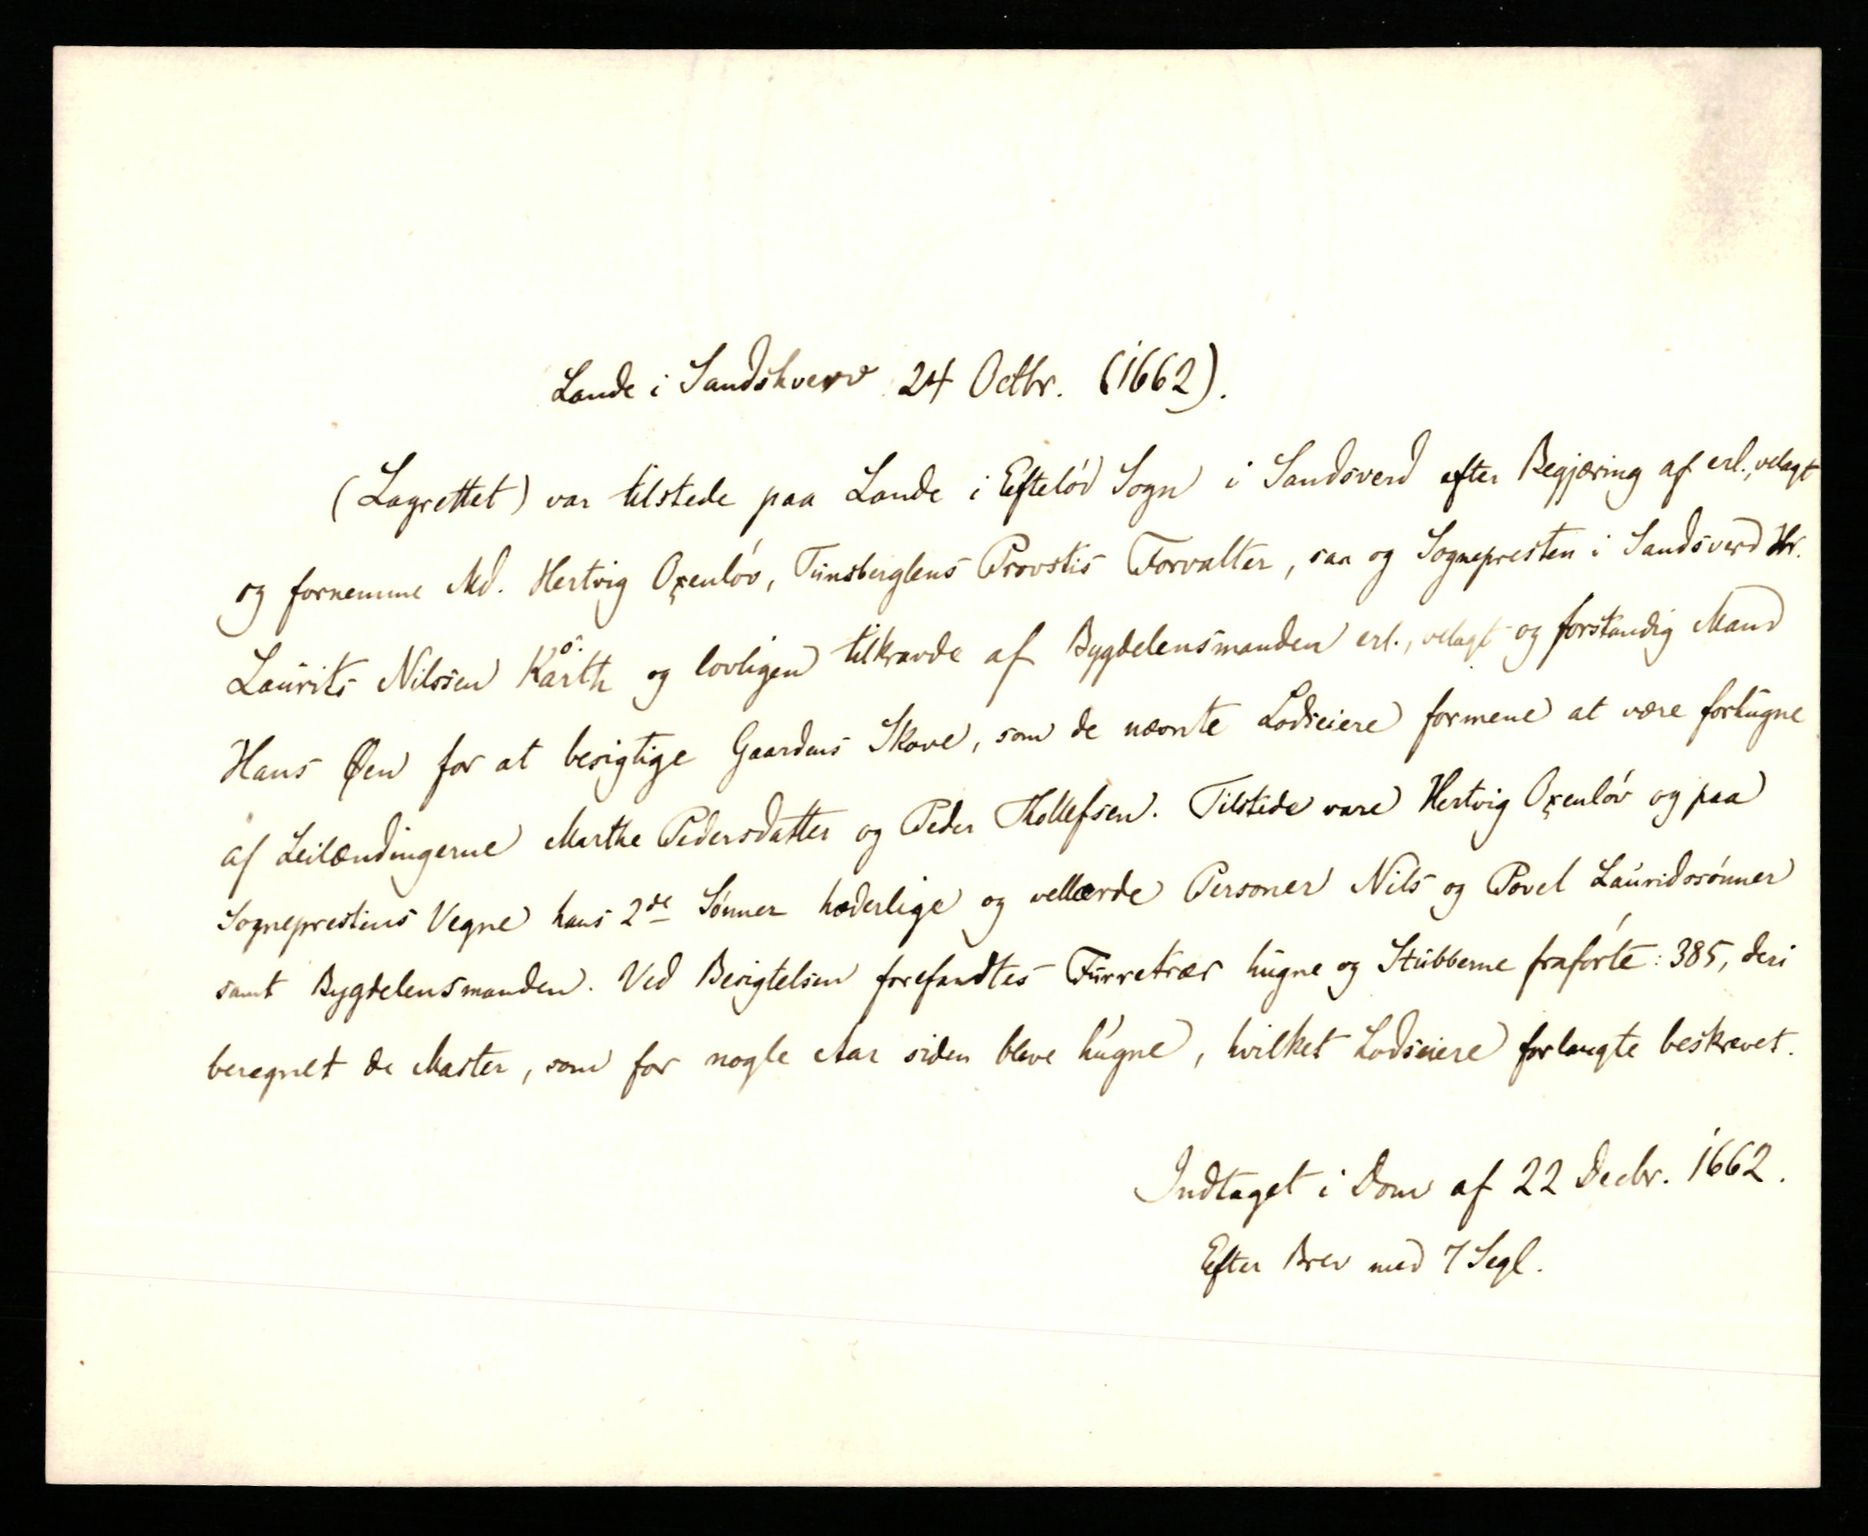 Lande i Sandshverv 24 Octbr. (1662).
(Lagrettet) var tilstede paa Lande i Efteløv Sogn i Sandsverd efter Begjæring af erl., velagt
og fornemme Md. Hertvig Oxenløv, Tunsberglens Provstis Forvalter, saa og Sognepresten i Sandsverd Hr.
Laurits Nilssen Karth og lovligen tilkravde af Bygdelensmanden erl., velagt og forstandig Mand
Hans Øen for at besigtige Gaardens Skove, som de nævnte Lodseiere formene at være forhugne
af Leilændingerne Marthe Pedersdatter og Peder Thollefsen. Tilstede vare Hertvig Oxenløv og paa
Sogneprestens Vegne hans 2de Sønner hæderlige og vellærde Personer Nils og Povel Lauridssønner
samt Bygdelensmanden. Ved Besigtelsen forefandtes Furretrær hugne og Stubberne fraførte: 385, deri
beregnet de Master, som for nogle Aar siden bleve hugne, hvilket Lodseiere forlangte beskrevet.
Indtaget i Dom af 22 Decbr. 1662.
Efter Brev med 7 Segl.